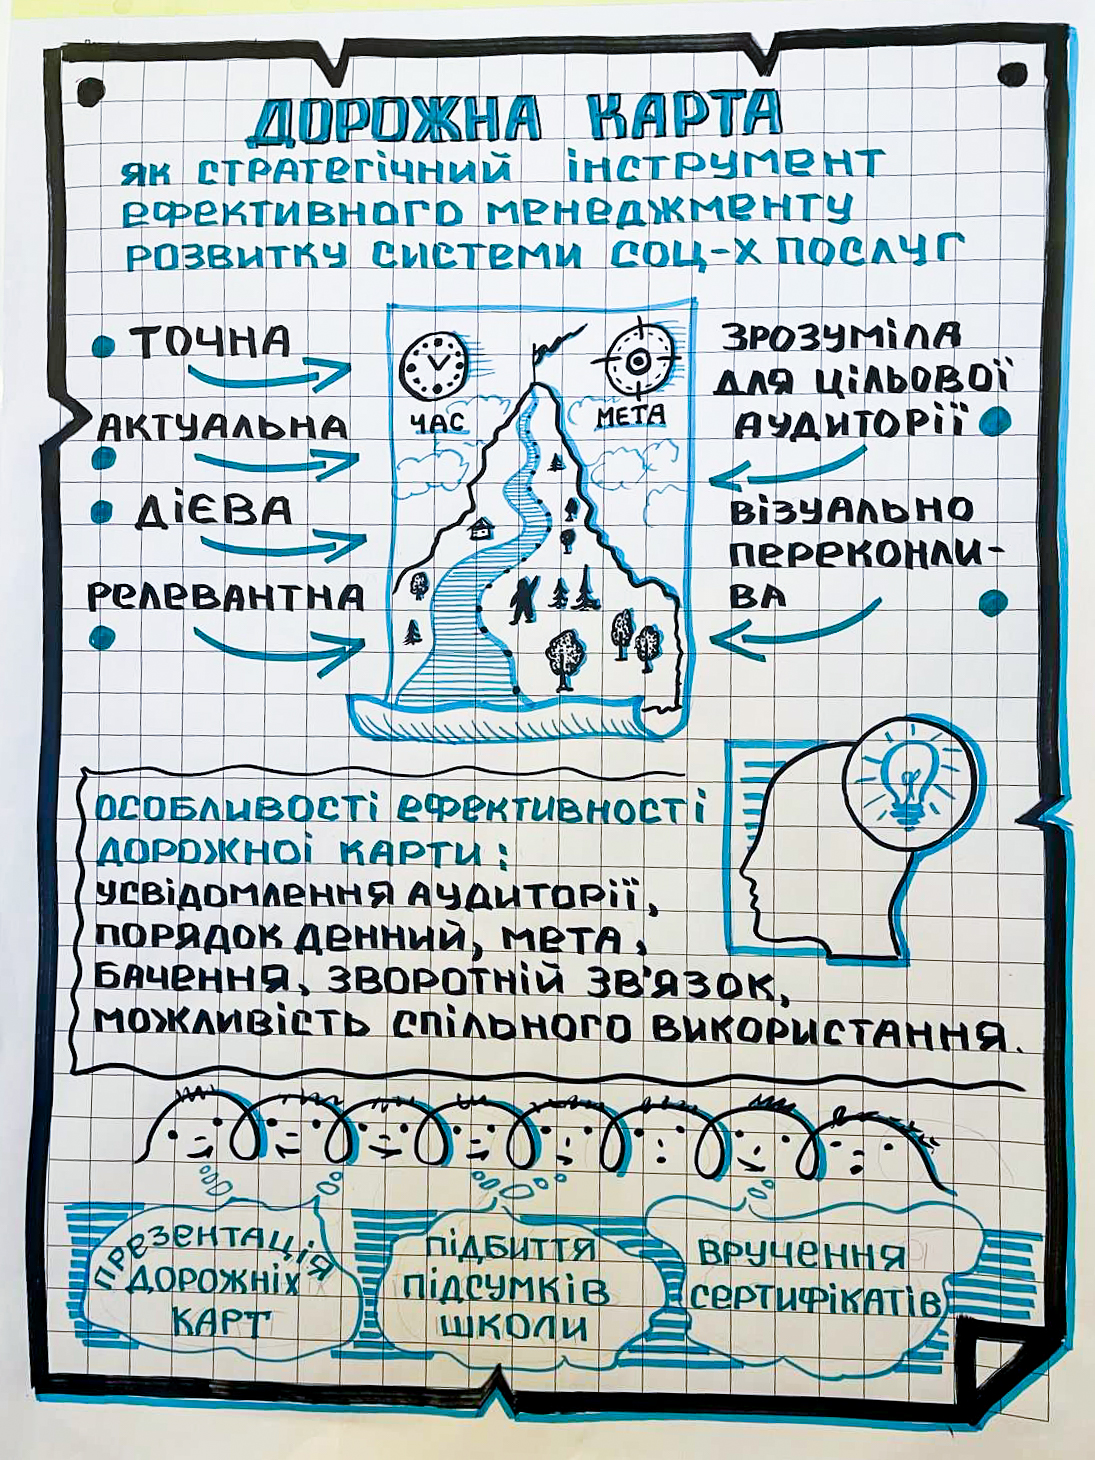 ДОРОЖНА КАРТА
ЯК СТРАТЕГІЧНИЙ ІНСТРУМЕНТ
ЕФЕКТИВНОГО МЕНЕДЖМЕНТУ
РОЗВИТКУ СИСТЕМИ СОЦ-Х ПОСЛУГ
ТОЧНА
АКТУАЛЬНА
ДІЄВА
РЕЛЕВАНТНА
ЧАС
МЕТА
ЗРОЗУМІЛА
ДЛЯ ЦІЛЬОВОЇ
АУДИТОРІЇ
ВІЗУАЛЬНО
ПЕРЕКОНЛИ-
ВА
ОСОБЛИВОСТІ ЕФЕКТИВНОСТІ
ДОРОЖНОЇ КАРТИ:
УСВІДОМЛЕННЯ АУДИТОРІЇ,
ПОРЯДОК ДЕННИЙ, МЕТА,
БАЧЕННЯ, ЗВОРОТНІЙ ЗВ'ЯЗОК,
МОЖЛИВІСТЬ СПІЛЬНОГО ВИКОРИСТАННЯ.
ПРЕЗЕНТАЦІЯ
ДОРОЖНІХ
КАРТ
ПІДБИТТЯ
ПІДСУМКІВ
ШКОЛИ
ВРУЧЕННЯ
СЕРТИФІКАТІВ